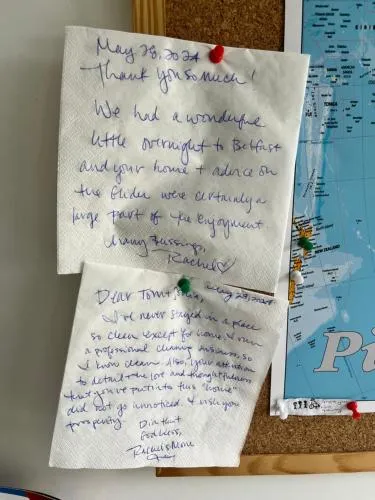 May 28, 2024
Thank you so much!
We had a wonderful
little overnight to Belfast
and your home + advice on
the Glider were certainly a
large part of the enjoyment.
Many Blessings,
Rachel ♡
May 28, 2024
Dear Tom +
I've never stayed in a place
so clean except for home, + I run
a professional cleaning business, so
I know clean. Also, your attention
to detail + the love and thoughtfulness
that you've put into this "home"
did not go unnoticed. I wish you
prosperity.
Rachel's Mom
TONGA
NEW ZEALAND
Pi